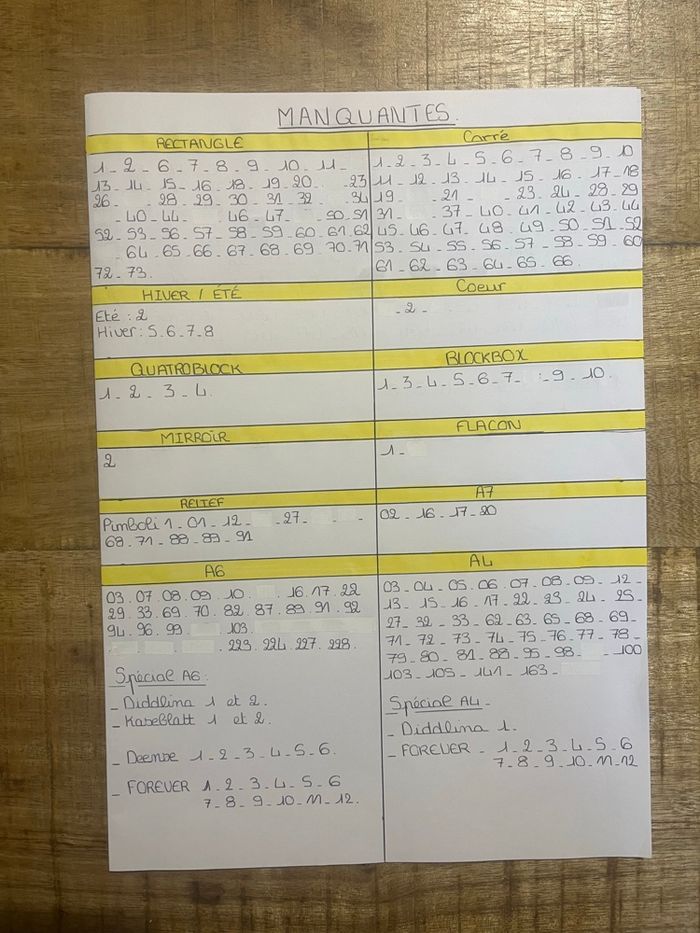 MANQUANTES.
RECTANGLE
1 - 2 - 6 - 7 - 8 - 9 - 10 - 11 -
13 - 14 - 15 - 16 - 18 - 19 - 20 - 23
26 - 28 - 29 - 30 - 31 - 32 - 34
- 40 - 44 - 46 - 47 - 50 - 51
52 - 53 - 56 - 57 - 58 - 59 - 60 - 61 - 62
- 64 - 65 - 66 - 67 - 68 - 69 - 70 - 71
72 - 73.
Carré
1 - 2 - 3 - 4 - 5 - 6 - 7 - 8 - 9 - 10
11 - 12 - 13 - 14 - 15 - 16 - 17 - 18
19 - 21 - 23 - 24 - 28 - 29
31 - 37 - 40 - 41 - 42 - 43 - 44
45 - 46 - 47 - 48 - 49 - 50 - 51 - 52
53 - 54 - 55 - 56 - 57 - 58 - 59 - 60
61 - 62 - 63 - 64 - 65 - 66.
HIVER / ÉTÉ
Eté : 2
Hiver : 5 - 6 - 7 - 8
Coeur
- 2 -
QUATROBLOCK
1 - 2 - 3 - 4.
BLOCKBOX
1 - 3 - 4 - 5 - 6 - 7 - - 9 - 10.
MIRROIR
2
FLACON
1 -
RELIEF
Pimboli 1 - 01 - 12 - - 27 - -
68 - 71 - 88 - 89 - 91
A7
02 - 16 - 17 - 20
A6
03 . 07 . 08 . 09 . 10 . . 16 . 17 . 22
29 . 33 . 69 . 70 . 82 . 87 . 89 . 91 . 92
94 . 96 . 99 . 103 .
. 223 . 224 . 227 . 228 .
Spécial A6 :
- Diddlina 1 et 2.
- Kaseblatt 1 et 2.
- Deense 1 - 2 - 3 - 4 - 5 - 6.
- FOREVER 1 - 2 - 3 - 4 - 5 - 6
7 - 8 - 9 - 10 - 11 - 12.
A4
03 - 04 - 05 - 06 - 07 - 08 - 09 - 12 -
13 - 15 - 16 - 17 - 22 - 23 - 24 - 25 -
27 - 32 - 33 - 62 - 63 - 65 - 68 - 69 -
71 - 72 - 73 - 74 - 75 - 76 - 77 - 78 -
79 - 80 - 81 - 88 - 95 - 98 - - 100
103 - 105 - 141 - 163 -
Spécial A4 -
- Diddlina 1.
- FOREVER - 1 - 2 - 3 - 4 - 5 - 6
7 - 8 - 9 - 10 - 11 - 12